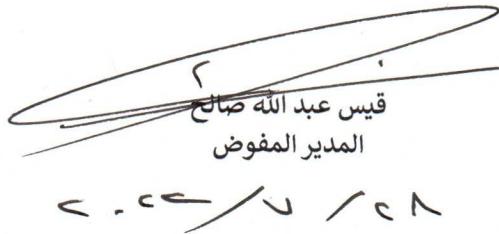 قيس عبد الله صالح
المدير المفوض
٢٠٢٢/٧/٢٨